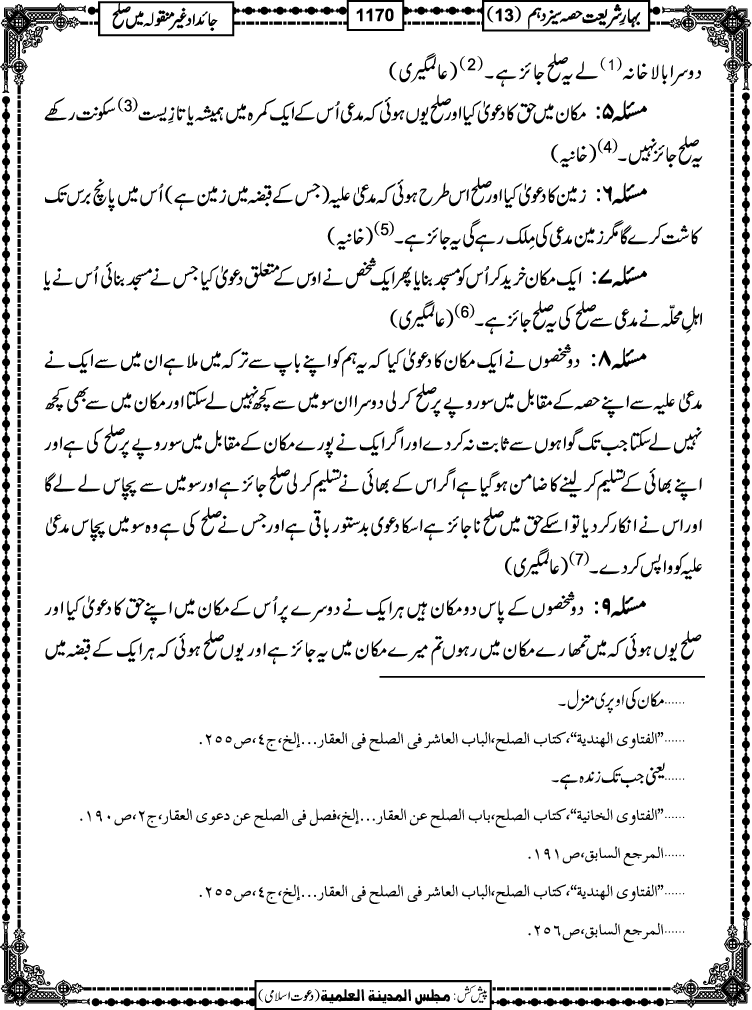 بہارِ شریعت حصہ سیزدہم (13)
1170
جائداد غیر منقولہ میں صلح
دوسرا بالا خانہ (1) لے یہ صلح جائز ہے۔ (2) (عالمگیری)
مسئلہ ۵: مکان میں حق کا دعویٰ کیا اور صلح یوں ہوئی کہ مدعی اُس کے ایک کمرہ میں ہمیشہ یا تازیست (3) سکونت رکھے
یہ صلح جائز نہیں۔ (4) (خانیہ)
مسئلہ ۶: زمین کا دعویٰ کیا اور صلح اس طرح ہوئی کہ مدعیٰ علیہ (جس کے قبضہ میں زمین ہے) اُس میں پانچ برس تک
کاشت کرے گا مگر زمین مدعی کی مِلک رہے گی یہ جائز ہے۔ (5) (خانیہ)
مسئلہ ۷: ایک مکان خرید کر اُس کو مسجد بنایا پھر ایک شخص نے اوس کے متعلق دعویٰ کیا جس نے مسجد بنائی اُس نے یا
اہلِ محلّہ نے مدعی سے صلح کی یہ صلح جائز ہے۔ (6) (عالمگیری)
مسئلہ ۸: دو شخصوں نے ایک مکان کا دعویٰ کیا کہ یہ ہم کو اپنے باپ سے ترکہ میں ملا ہے ان میں سے ایک نے
مدعیٰ علیہ سے اپنے حصہ کے مقابل میں سو روپے پر صلح کر لی دوسرا ان سو میں سے کچھ نہیں لے سکتا اور مکان میں سے بھی کچھ
نہیں لے سکتا جب تک گواہوں سے ثابت نہ کر دے اور اگر ایک نے پورے مکان کے مقابل میں سو روپے پر صلح کی ہے اور
اپنے بھائی کے تسلیم کر لینے کا ضامن ہو گیا ہے اگر اس کے بھائی نے تسلیم کر لی صلح جائز ہے اور سو میں سے پچاس لے لے گا
اور اس نے انکار کر دیا تو اسکے حق میں صلح ناجائز ہے اسکا دعویٰ بدستور باقی ہے اور جس نے صلح کی ہے وہ سو میں پچاس مدعیٰ
علیہ کو واپس کر دے۔ (7) (عالمگیری)
مسئلہ ۹: دو شخصوں کے پاس دو مکان ہیں ہر ایک نے دوسرے پر اُس کے مکان میں اپنے حق کا دعویٰ کیا اور
صلح یوں ہوئی کہ میں تمہارے مکان میں رہوں تم میرے مکان میں یہ جائز ہے اور یوں صلح ہوئی کہ ہر ایک کے قبضہ میں
......مکان کی اوپری منزل۔
......"الفتاوی الهندیة"، کتاب الصلح، الباب العاشر فی الصلح فی العقار...إلخ، ج٤، ص٢٥٥.
......یعنی جب تک زندہ ہے۔
......"الفتاوی الخانیة"، کتاب الصلح، باب الصلح عن العقار...إلخ، فصل فی الصلح عن دعوی العقار، ج٢، ص١٩٠.
......المرجع السابق، ص١٩١.
......"الفتاوی الهندیة"، کتاب الصلح، الباب العاشر فی الصلح فی العقار...إلخ، ج٤، ص٢٥٥.
......المرجع السابق، ص٢٥٦.
پیش کش: مجلس المدینة العلمیة (دعوت اسلامی)